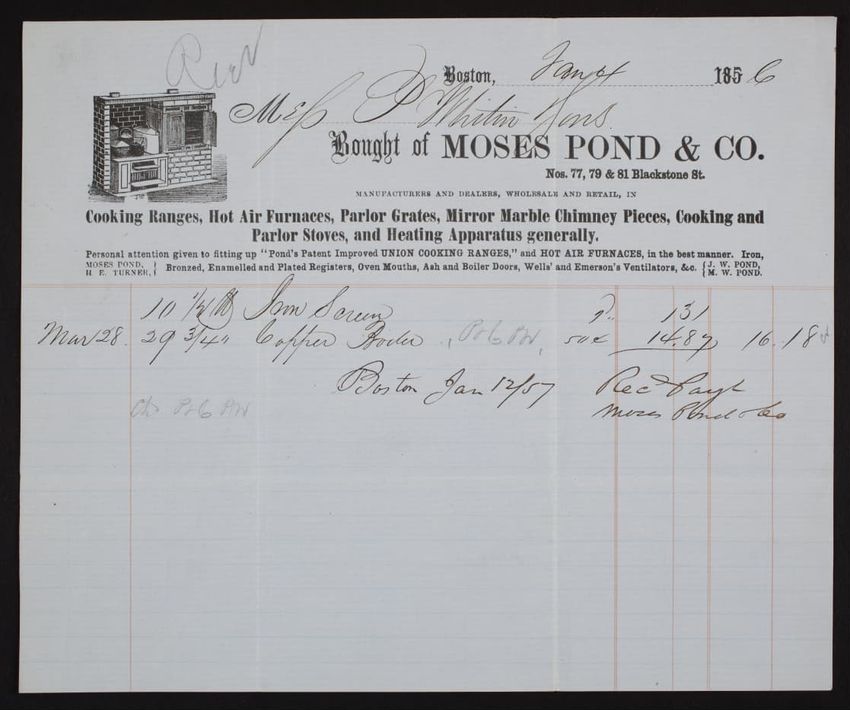 Boston, Jany 1856
Mess P Whitin & Sons
Bought of MOSES POND & CO.
Nos. 77, 79 & 81 Blackstone St.
MANUFACTURERS AND DEALERS, WHOLESALE AND RETAIL, IN
Cooking Ranges, Hot Air Furnaces, Parlor Grates, Mirror Marble Chimney Pieces, Cooking and
Parlor Stoves, and Heating Apparatus generally.
Personal attention given to fitting up "Pond's Patent Improved UNION COOKING RANGES," and HOT AIR FURNACES, in the best manner. Iron,
Bronzed, Enamelled and Plated Registers, Oven Mouths, Ash and Boiler Doors, Wells' and Emerson's Ventilators, &c.
MOSES POND,
H. E. TURNER,
J. W. POND,
M. W. POND.
10 1/2 lb Iron 131
Mar 28. 29 3/4 " Copper Boiler 50c 14.87 16.18
Boston Jan 12/57 Recd Payt
Moses Pond & Co